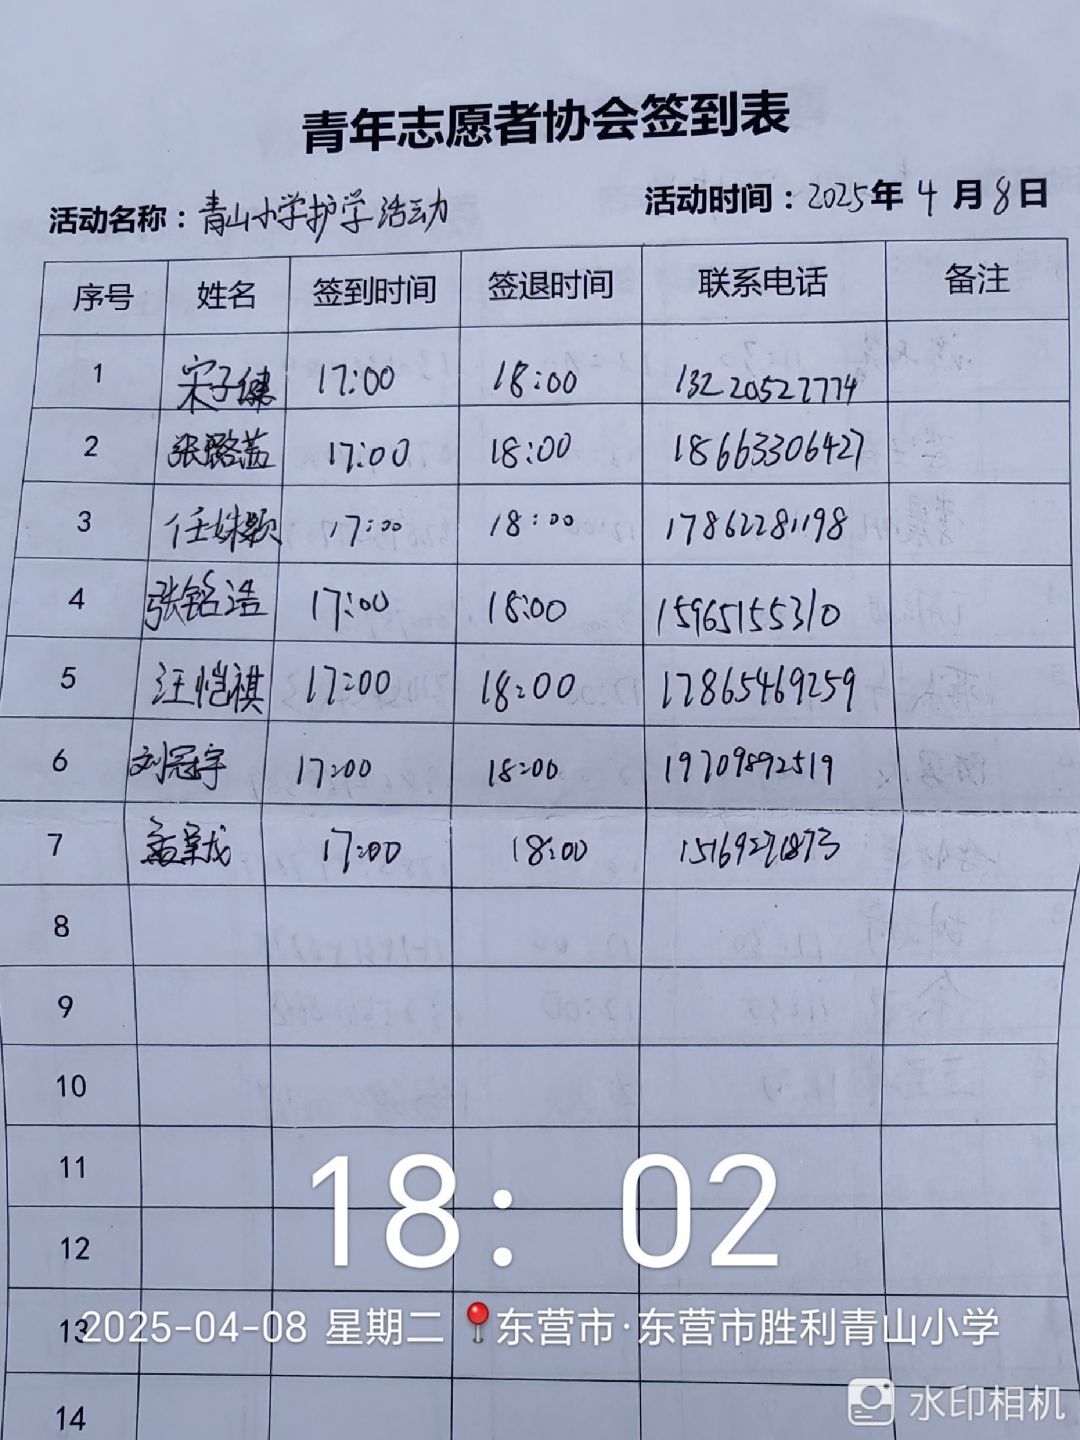 青年志愿者协会签到表
活动名称：青山小学护学活动 活动时间：2025年4月8日
序号 姓名 签到时间 签退时间 联系电话 备注
1 宋子健 17:00 18:00 13220527774
2 张璐 17:00 18:00 18663306427
3 任姝颖 17:00 18:00 17862281198
4 张铭浩 17:00 18:00 15965155310
5 汪恺祺 17:00 18:00 17865469259
6 刘冠宇 17:00 18:00 19709892519
7 17:00 18:00
8
9
10
11
18:02
12
13
2025-04-08 星期二 东营市·东营市胜利青山小学
14
水印相机